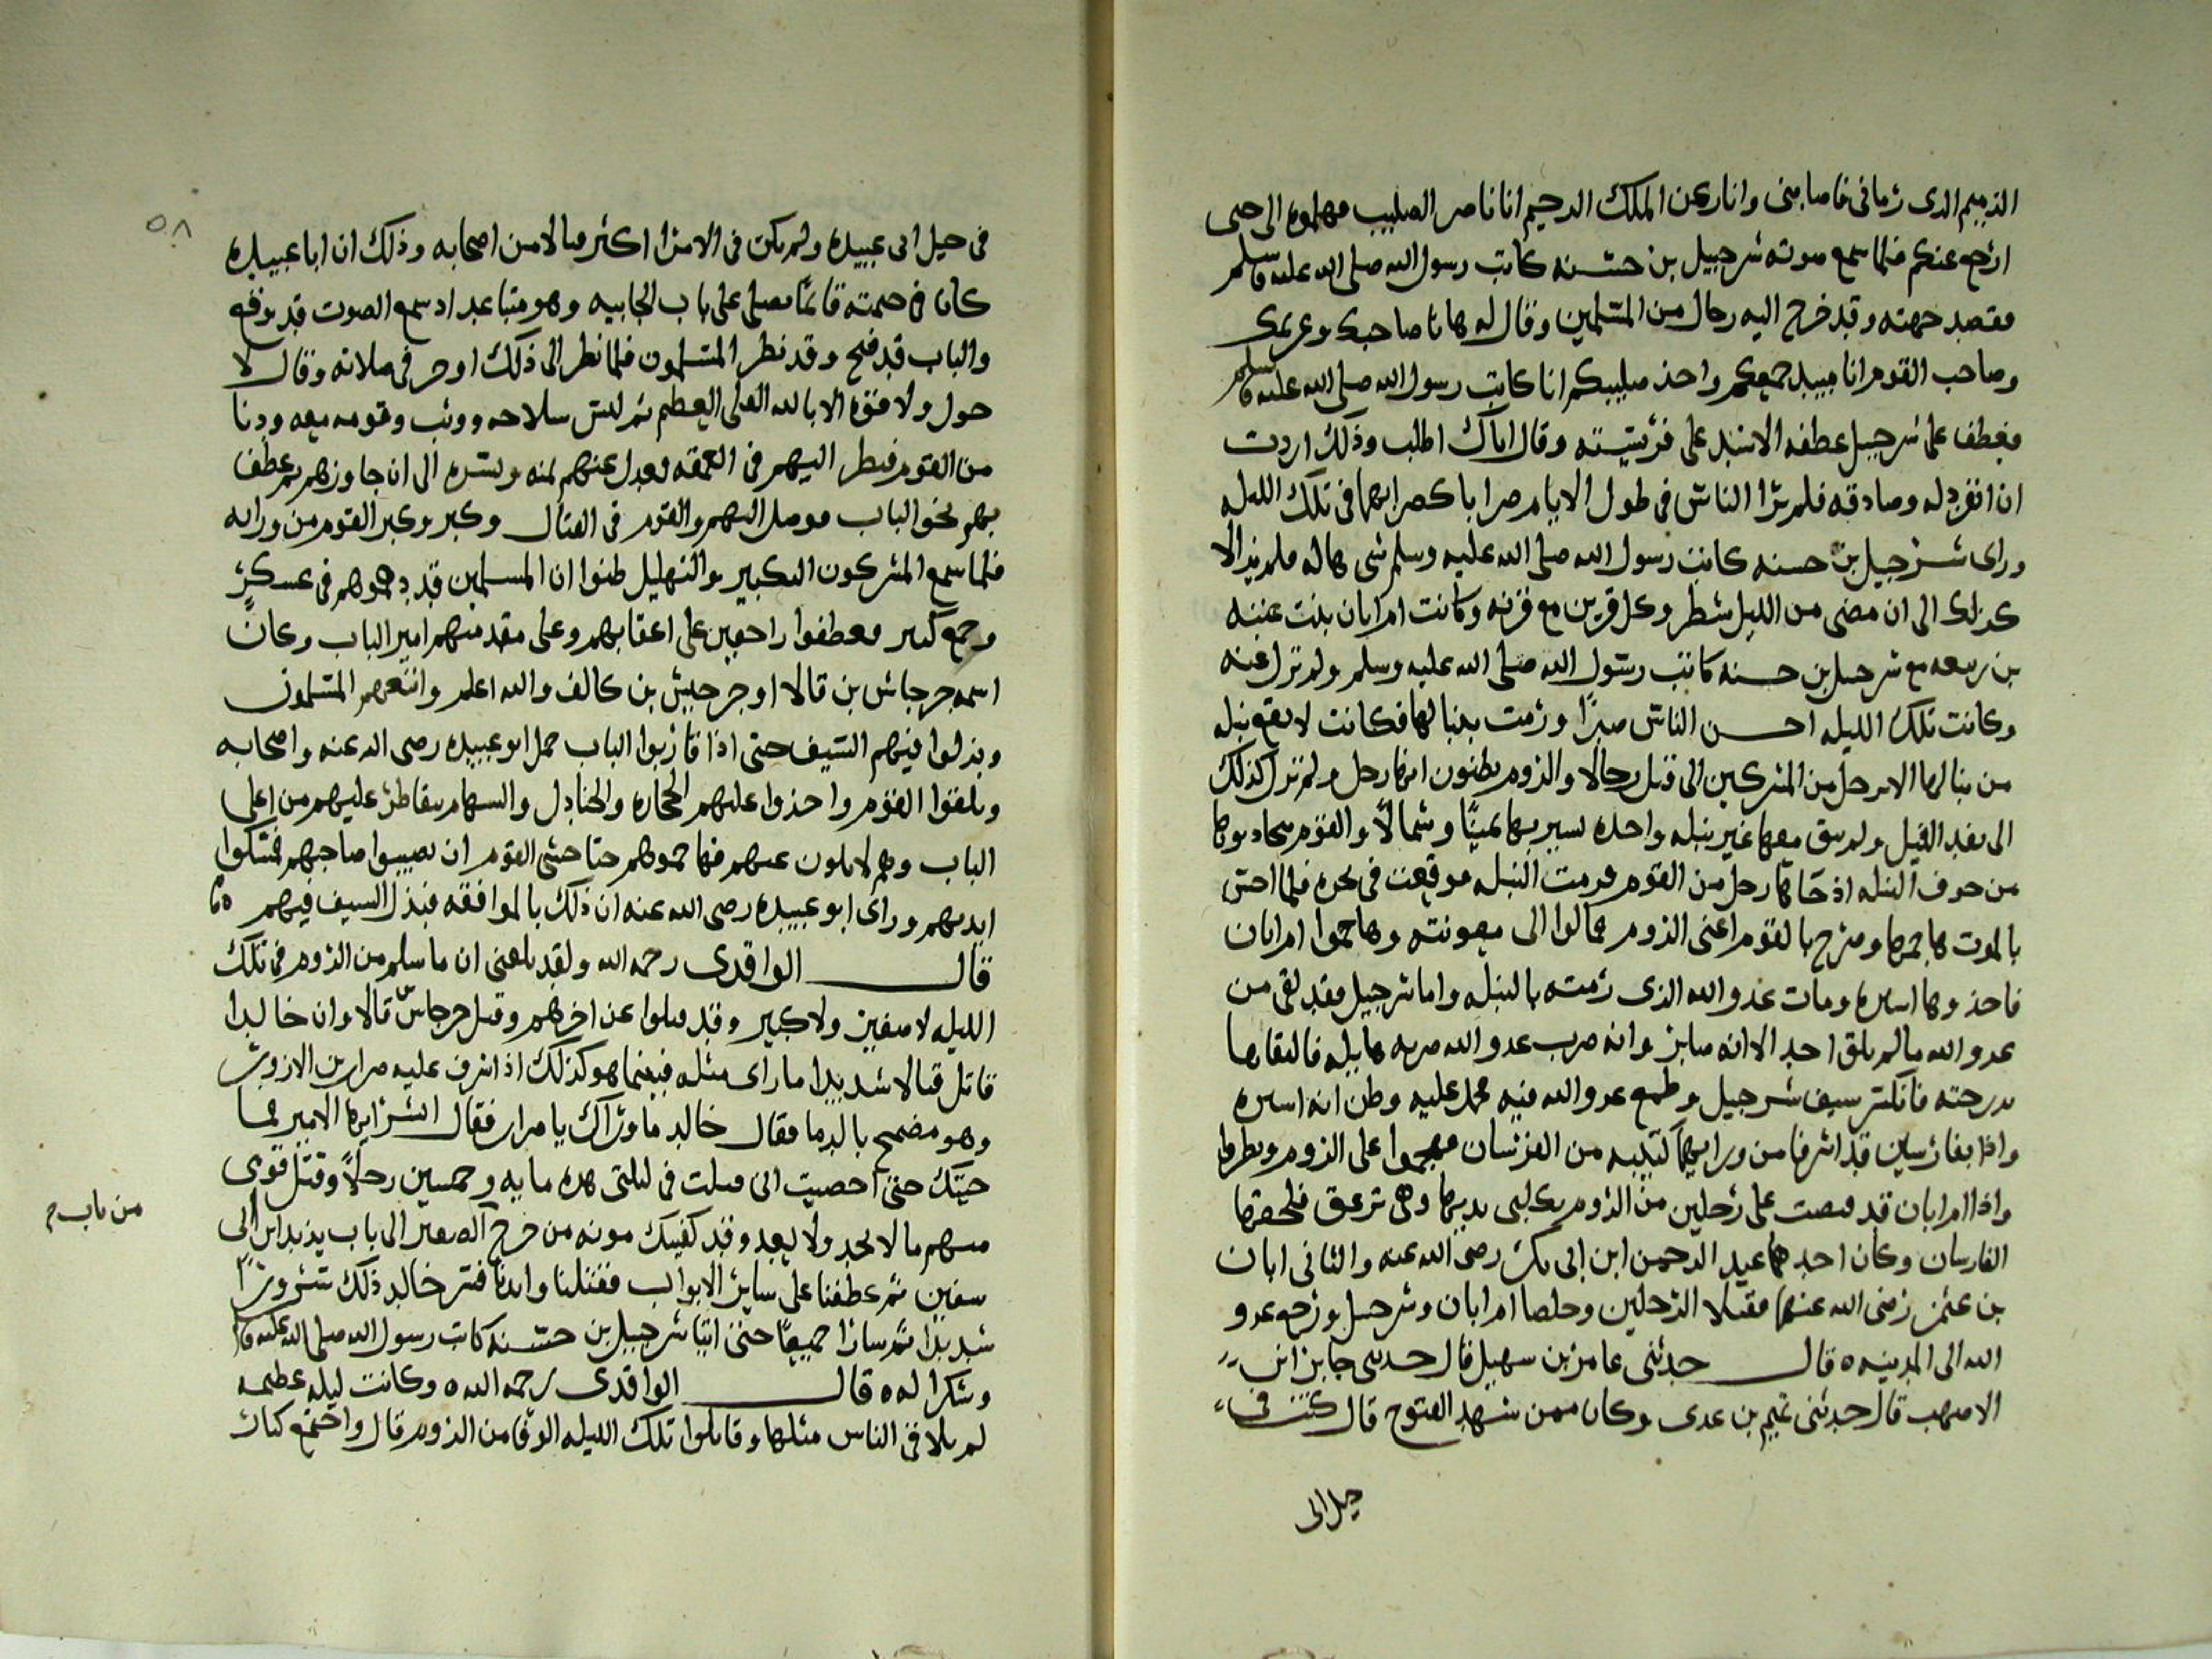 الذميم الذى رمانى فاصابنى وانا ركن الملك الرحيم انا ناصر الصليب فهلموه الى حتى
ارجع عنكم فلما سمع صوته شرحبيل بن حسنه كاتب رسول الله صلى الله عليه وسلم
فقصد جهته وقد خرج اليه رجال من المسلمين وقال له هانا صاحبك وغريمك
وصاحب القوم انا مبيد جمعكم واخذ صليبكم انا كاتب رسول الله صلى الله عليه وسلم
فعطف على شرحبيل عطفه الاسد على فريسته وقال اياك اطلب وذلك اردت
ان انفرد له وصادقه فلم ترا الناس فى طول الايام ضرابا كضرابهما فى تلك الليله
وراى شرحبيل بن حسنه كاتب رسول الله صلى الله عليه وسلم شى هاله فلم يزالا
كذلك الى ان مضى من الليل شطر وكل قرين مع قرنه وكانت ام ابان بنت عتبه
بن ربيعه مع شرحبيل بن حسنه كاتب رسول الله صلى الله عليه وسلم ولم تزل عنه
وكانت تلك الليله احسن الناس صبرًا ورمت بنبالها فكانت لا يقع نبله
من نبالها الا برجل من المشركين الى قتل رجالا والروم يظنون انها رجل ولم تزل كذلك
الى نفد النبل ولم يبق معها غير نبله واحده تسير بها يمينًا وشمالاً والقوم يتحادبوها
من خوف النبله اذ جاها رجل من القوم فرمت النبله فوقعت فى نحره فلما احس
بالموت هاجمها وصرخ بالقوم اعنى الروم فمالوا الى معونته وهاجموا ام ابان
فاخذوها اسيره ومات عدو الله الذى رمته بالنبله واما شرحبيل فقد لقى من
عدو الله ما لم يلق احد الا انه صابر وانه ضرب عدو الله ضربه هايله فالتقاها
بدرجته فانكسر سيف شرحبيل وطمع عدو الله فيه فحمل عليه وظن انه اسيره
واذا بفارسين قد اشرفا من ورايهما كتيبه من الفرسان فهجموا على الروم ونظروا
واذا ام ابان قد قبضت على رجلين من الروم بكلتى يديها وهى تزعق فلحقها
الفارسان وكان احدهما عبد الرحمن ابن ابى بكر رضى الله عنه والثانى ابان
بن عثمن رضى الله عنهما فقتلا الرجلين وخلصا ام ابان وشرحبيل ورجع عدو
الله الى المدينه ٥ قال حدثنى عامر بن سهيل قال حدثنى جابر ابن
الاصهب قال حدثنى تميم بن عدى وكان ممن شهد الفتوح قال كنت فى
خيل ابى
٥٨
فى خيل ابى عبيده ولم يكن فى الامرا اكثر مالا من اصحابه وذلك ان ابا عبيده
كان فى خيمته قائمًا يصلى على باب الجابيه وهو متباعد اذ سمع الصوت قد وقع
والباب قد فتح وقد نظر المسلمون فلما نظر الى ذلك اوجز فى صلاته وقال لا
حول ولا قوة الا بالله العلى العظيم ثم لبس سلاحه ووثب وقومه معه ودنا
من القوم فنظر اليهم فى المعمعه فعدل عنهم يمنه ويسره الى ان جاوزهم ثم عطف
بهم نحو الباب فوصل اليهم والقوم فى القتال وكبر وكبر القوم من ورايه
فلما سمع المشركون التكبير والتهليل ظنوا ان المسلمين قد دهموهم فى عسكر
وجمع كبير فعطفوا راجعين على اعقابهم وعلى مقدمتهم امير الباب وكان
اسمه جرجاس بن قالا او جرجيش بن كالف والله اعلم واتبعهم المسلمون
وبذلوا فيهم السيف حتى اذا قاربوا الباب حمل ابو عبيده رضى الله عنه واصحابه
وبلغوا القوم واخذوا عليهم الحجاره والجنادل والسهام يتقاطر عليهم من اعلى
الباب وهم لا يلون عنهم فهاجموهم حتا خشى القوم ان يصيبوا صاحبهم فمسكوا
ايديهم وراى ابو عبيده رضى الله عنه ان ذلك بالموافقه فبذل السيف فيهم ٥
قال الواقدى رحمه الله ولقد بلغنى ان ما سلم من الروم فى تلك
الليله لا صغير ولا كبير وقد قتلوا عن اخرهم وقتل جرجاس قالا وان خالدا
قاتل قتالا شديدا ما راى مثله فبينما هو كذلك اذ اشرف عليه ضرار بن الازور
وهو مضمح بالدما فقال خالد ما وراك يا ضرار فقال ابشر ايها الامير فما
جيتك حتى احصيت انى قتلت فى ليلتى هذه مايه وخمسين رجلاً وقتل قومى
منهم ما لا يحد ولا يعد وقد كفيتك مونه من خرج الصغير الى باب يزيد ابن ابى
من باب م
سفين ثم عطفنا على ساير الابواب فقتلنا وابدنا فسر خالد ذلك سرورًا
شديدا ثم سارا جميعًا حتى اتيا شرحبيل بن حسنه كاتب رسول الله صلى الله عليه وسلم
وشكرا له ٥ قال الواقدى رحمه الله ٥ وكانت ليله عظيمه
لم يلاقى الناس مثلها وقاتلوا تلك الليله الوفا من الروم قال واجتمع كبار